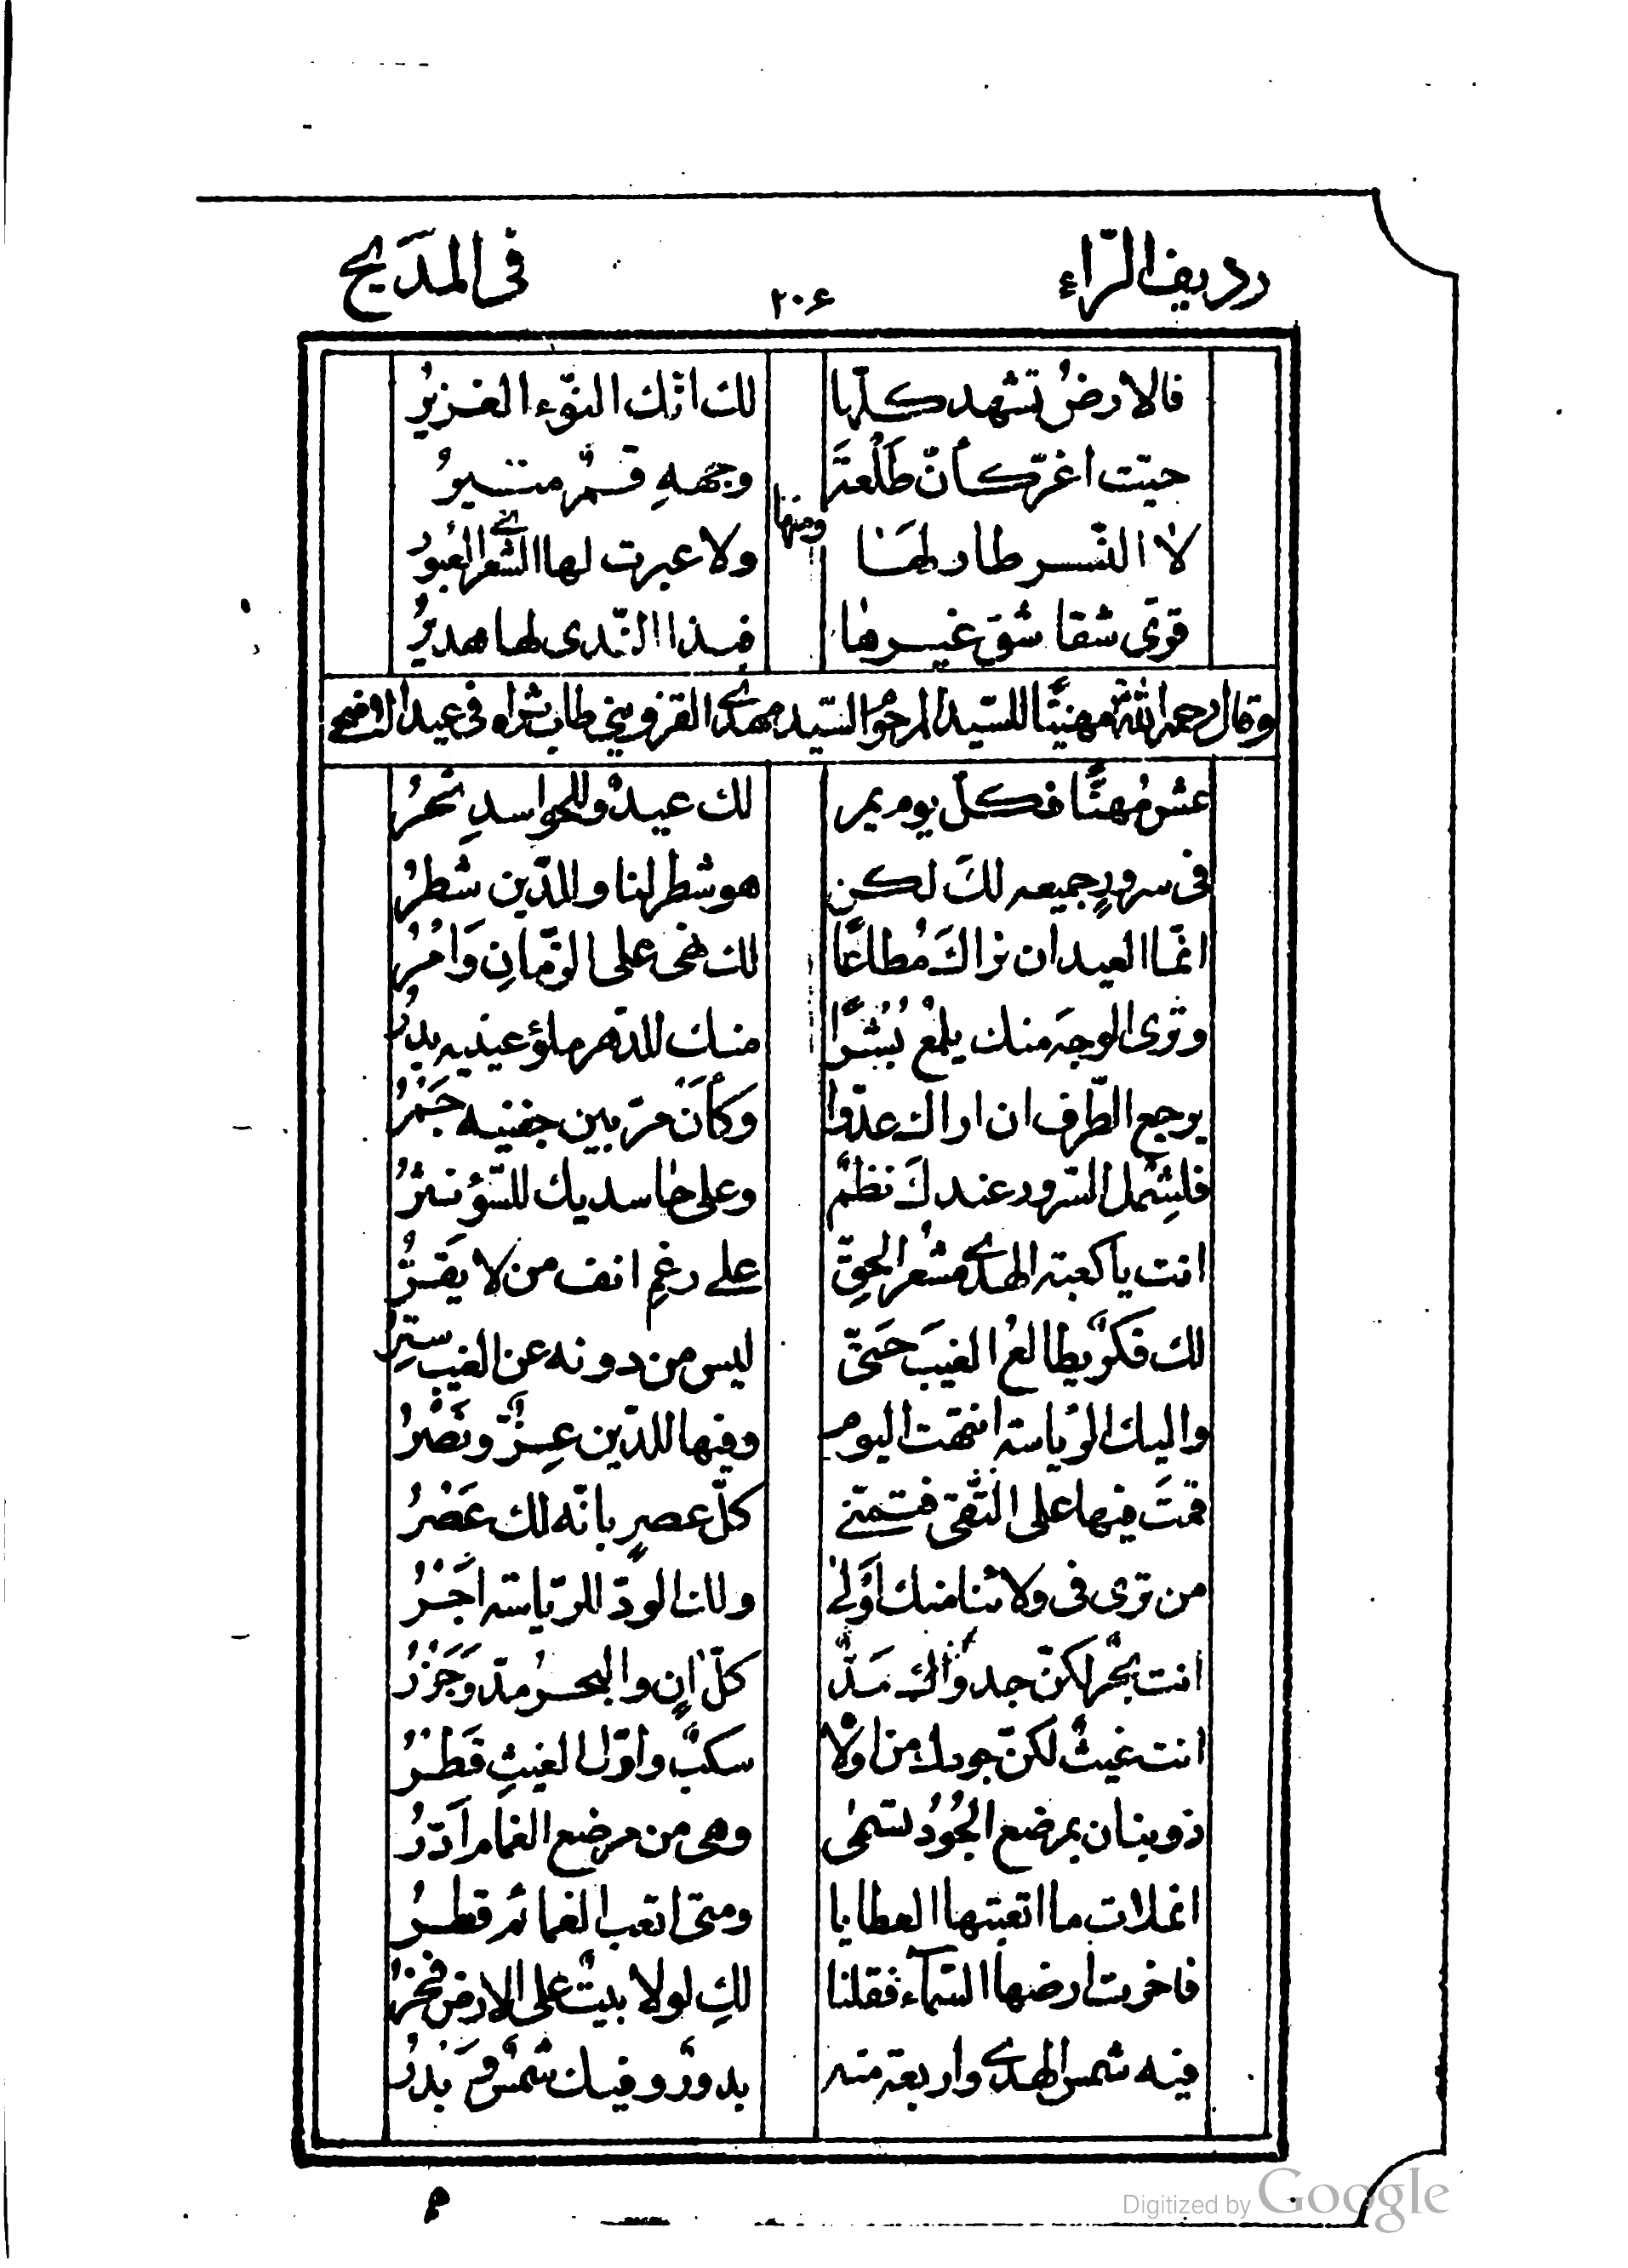 رديف الرّاء ٢٠۶ فى المدَيح
فالارضُ تشهد كلّها لك انّك النّوء الغزيرُ
حيّت اغرّ كأنّ طَلْعة وجههِ قمرٌ منيرُ
ومنها
لا النّسر طار لهَا ولا عبرت لها الشّعرى العبورُ
قوّى شقاشق غيرها فبذا النّدى لها هديرُ
وقال رحمه اللّه مهنيّا للسّيد المرحوم السّيد مهدى القزوينى طاب ثراه فى عيد الاضحى
عش مُهنّاً فكلّ يوم يمر لك عيدٌ وللحواسدِ نحرُ
فى سرورٍ جميعه لكَ لكن هو شطر لنا وللدّين شطرُ
انّما العيد ان نراكَ مُطاعًا لك نهى على الزّمانِ وَامْرُ
وترى الوجهَ منك يلمعُ بُشرًا منك للدّهر ملؤ عينيه بدرُ
يرجع الطّرف ان اراك عدّوا وَكأَنَ مرّ بين جفنيه جَمْرُ
فلِشمل السّرور عندكَ نظمٌ وعلى حاسديك للسّؤ نثرُ
انت يا كعبة الهدى مشعرُ الحقِّ على رغمِ انف من لا يَقرُّ
لك فكرٌ يطالعُ الغيبَ حَتىّ ليس من دونه عن الغيب سترُ
واليك الرّياسة انتهت اليوم وفيها للدّين عِزٌّ ونَصْرُ
قمتَ فيها على التّقى فتمنّى كلّ عصرٍ بانّه لك عَصْرُ
من ترى فى ولائنا منك اَوْلى ولك الودّ للرّياسة اجَرُ
انت بحرٌ لكنّ جدواك مَدٌّ كلّ انٍ والبحرُ مدّ وَجَزْرُ
انت غيثٌ لكنّ جودك من اولا سكبٌ واوّل الغيثِ قَطْرُ
ذو بنان بمرضع الجُودُ تسمى وهى من مرضع الغمام اَدّرُ
انملات ما اتعبتها العطايا ومتى اتعب الغمائم قطرُ
فاخرت ارضها السّماء فقلنا لكِ لولا بيتٌ على الارض فخرُ
فيه شمس الهدى واربعة منه بدورٌ وفيك شمسٌ وَبَدْرُ
Digitized by Google